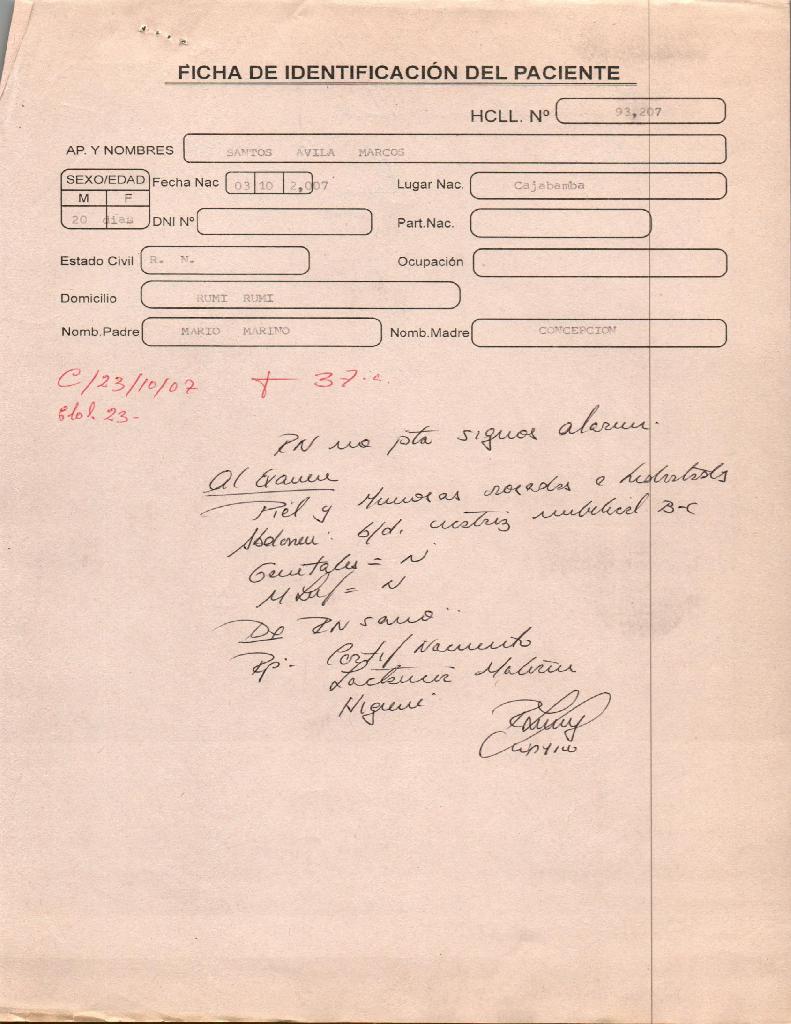 FICHA DE IDENTIFICACIÓN DEL PACIENTE
HCLL. Nº 93,207
AP. Y NOMBRES SANTOS AVILA MARCOS
SEXO/EDAD Fecha Nac 03 10 2,007 Lugar Nac. Cajabamba
M F
20 dias DNI Nº Part.Nac.
Estado Civil R. N. Ocupación
Domicilio RUMI RUMI
Nomb.Padre MARIO MARINO Nomb.Madre CONCEPCION
C/23/10/07 37
23-
RN no pta signos alarma.
Al Examen
Piel y Mucosas rosadas e hidratadas
Abdomen: b/d. cicatriz umbilical
Genitales = N
= N
Dx RN sano
Rp.- Certif/ Nacimiento
Lactancia Materna
Higiene